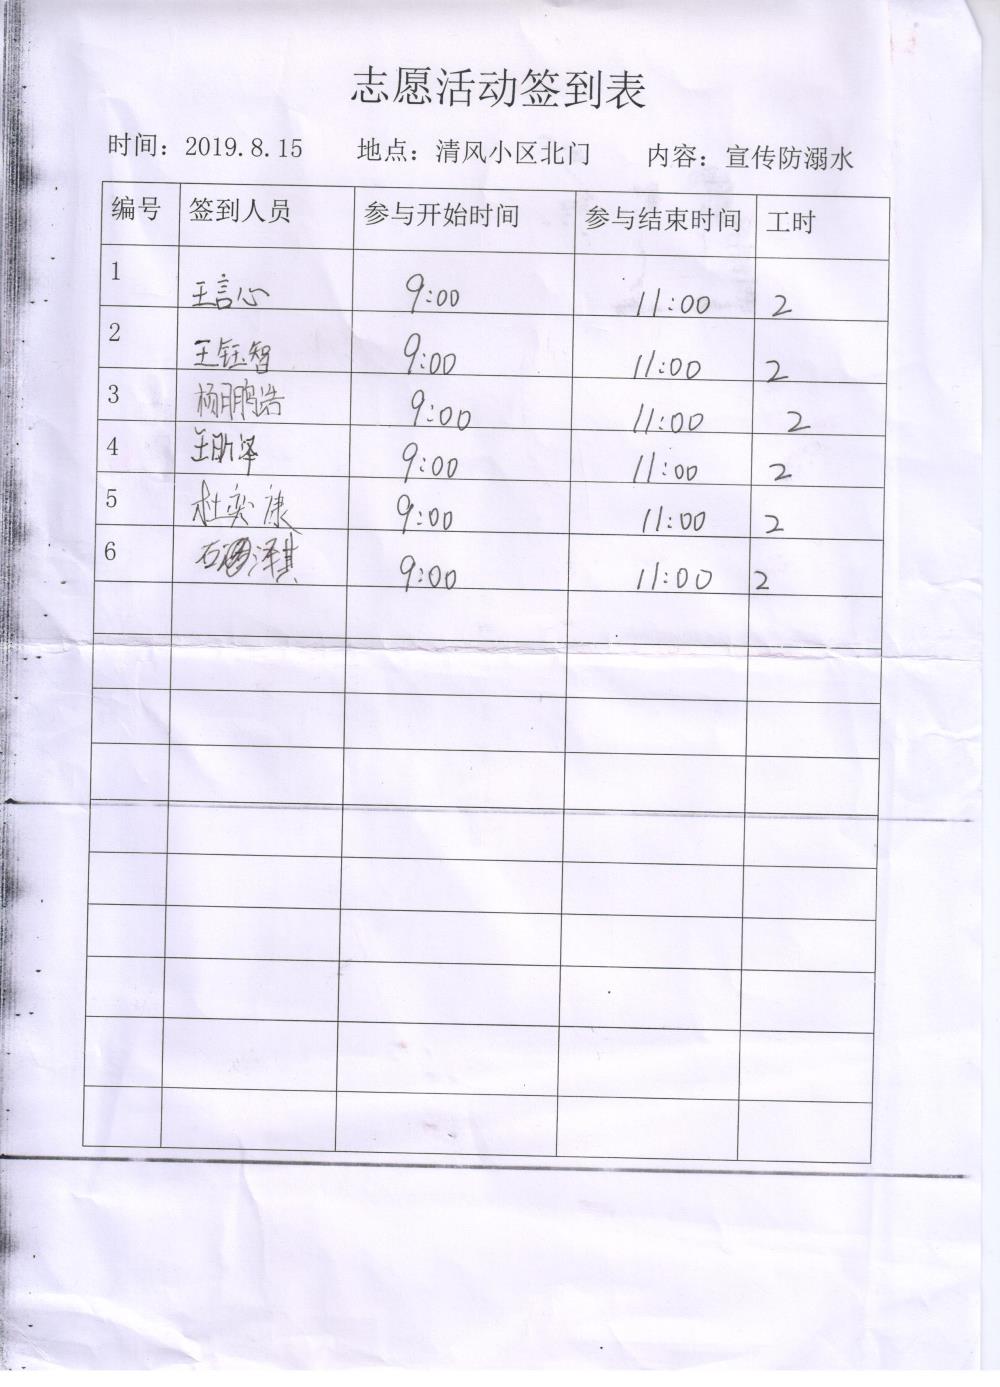 志愿活动签到表
时间：2019.8.15 地点：清风小区北门 内容：宣传防溺水
编号 签到人员 参与开始时间 参与结束时间 工时
1 王言心 9:00 11:00 2
2 王钰智 9:00 11:00 2
3 杨鹏浩 9:00 11:00 2
4 王昕泽 9:00 11:00 2
5 杜奕康 9:00 11:00 2
6 石泽淇 9:00 11:00 2